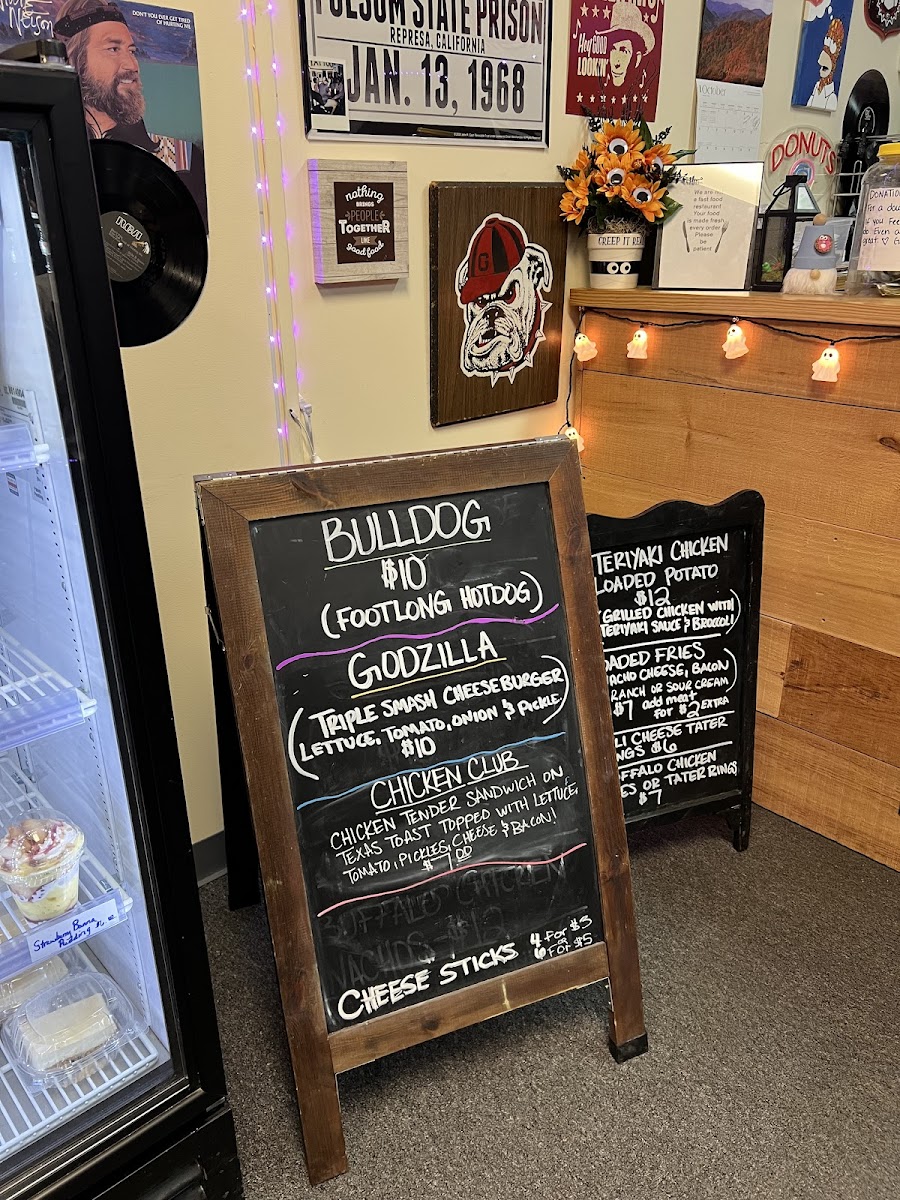 DON'T YOU EVER GET TIRED
OF HURTING ME
Nelson
FOLSOM STATE PRISON
REPRESA, CALIFORNIA
JAN. 13, 1968
HEY! GOOD
LOOKIN'
October
nothing
BRINGS
PEOPLE
TOGETHER
LIKE
good food
G
RCA
CREEP IT REAL
We are not
a fast food
restaurant
Your food
is made fresh
every order
Please
be
patient
DONUTS
DONATION
For a
if you Feel
do Even
great
BULLDOG
$10
(FOOTLONG HOTDOG)
GODZILLA
(TRIPLE SMASH CHEESEBURGER
LETTUCE, TOMATO, ONION & PICKLE)
$10
CHICKEN CLUB
CHICKEN TENDER SANDWICH ON
TEXAS TOAST TOPPED WITH LETTUCE,
TOMATO, PICKLES, CHEESE & BACON!
$7.00
BUFFALO CHICKEN
NACHOS $12
CHEESE STICKS 4 for $3
or
6 FOR $5
TERIYAKI CHICKEN
LOADED POTATO
$12
GRILLED CHICKEN WITH
TERIYAKI SAUCE & BROCCOLI)
OADED FRIES
ACHO CHEESE, BACON
RANCH OR SOUR CREAM)
$7 add meat
for $2 EXTRA
LI CHEESE TATER
NGS $6
FFALO CHICKEN
ES OR TATER RINGS
$7
Strawberry Banana
Pudding